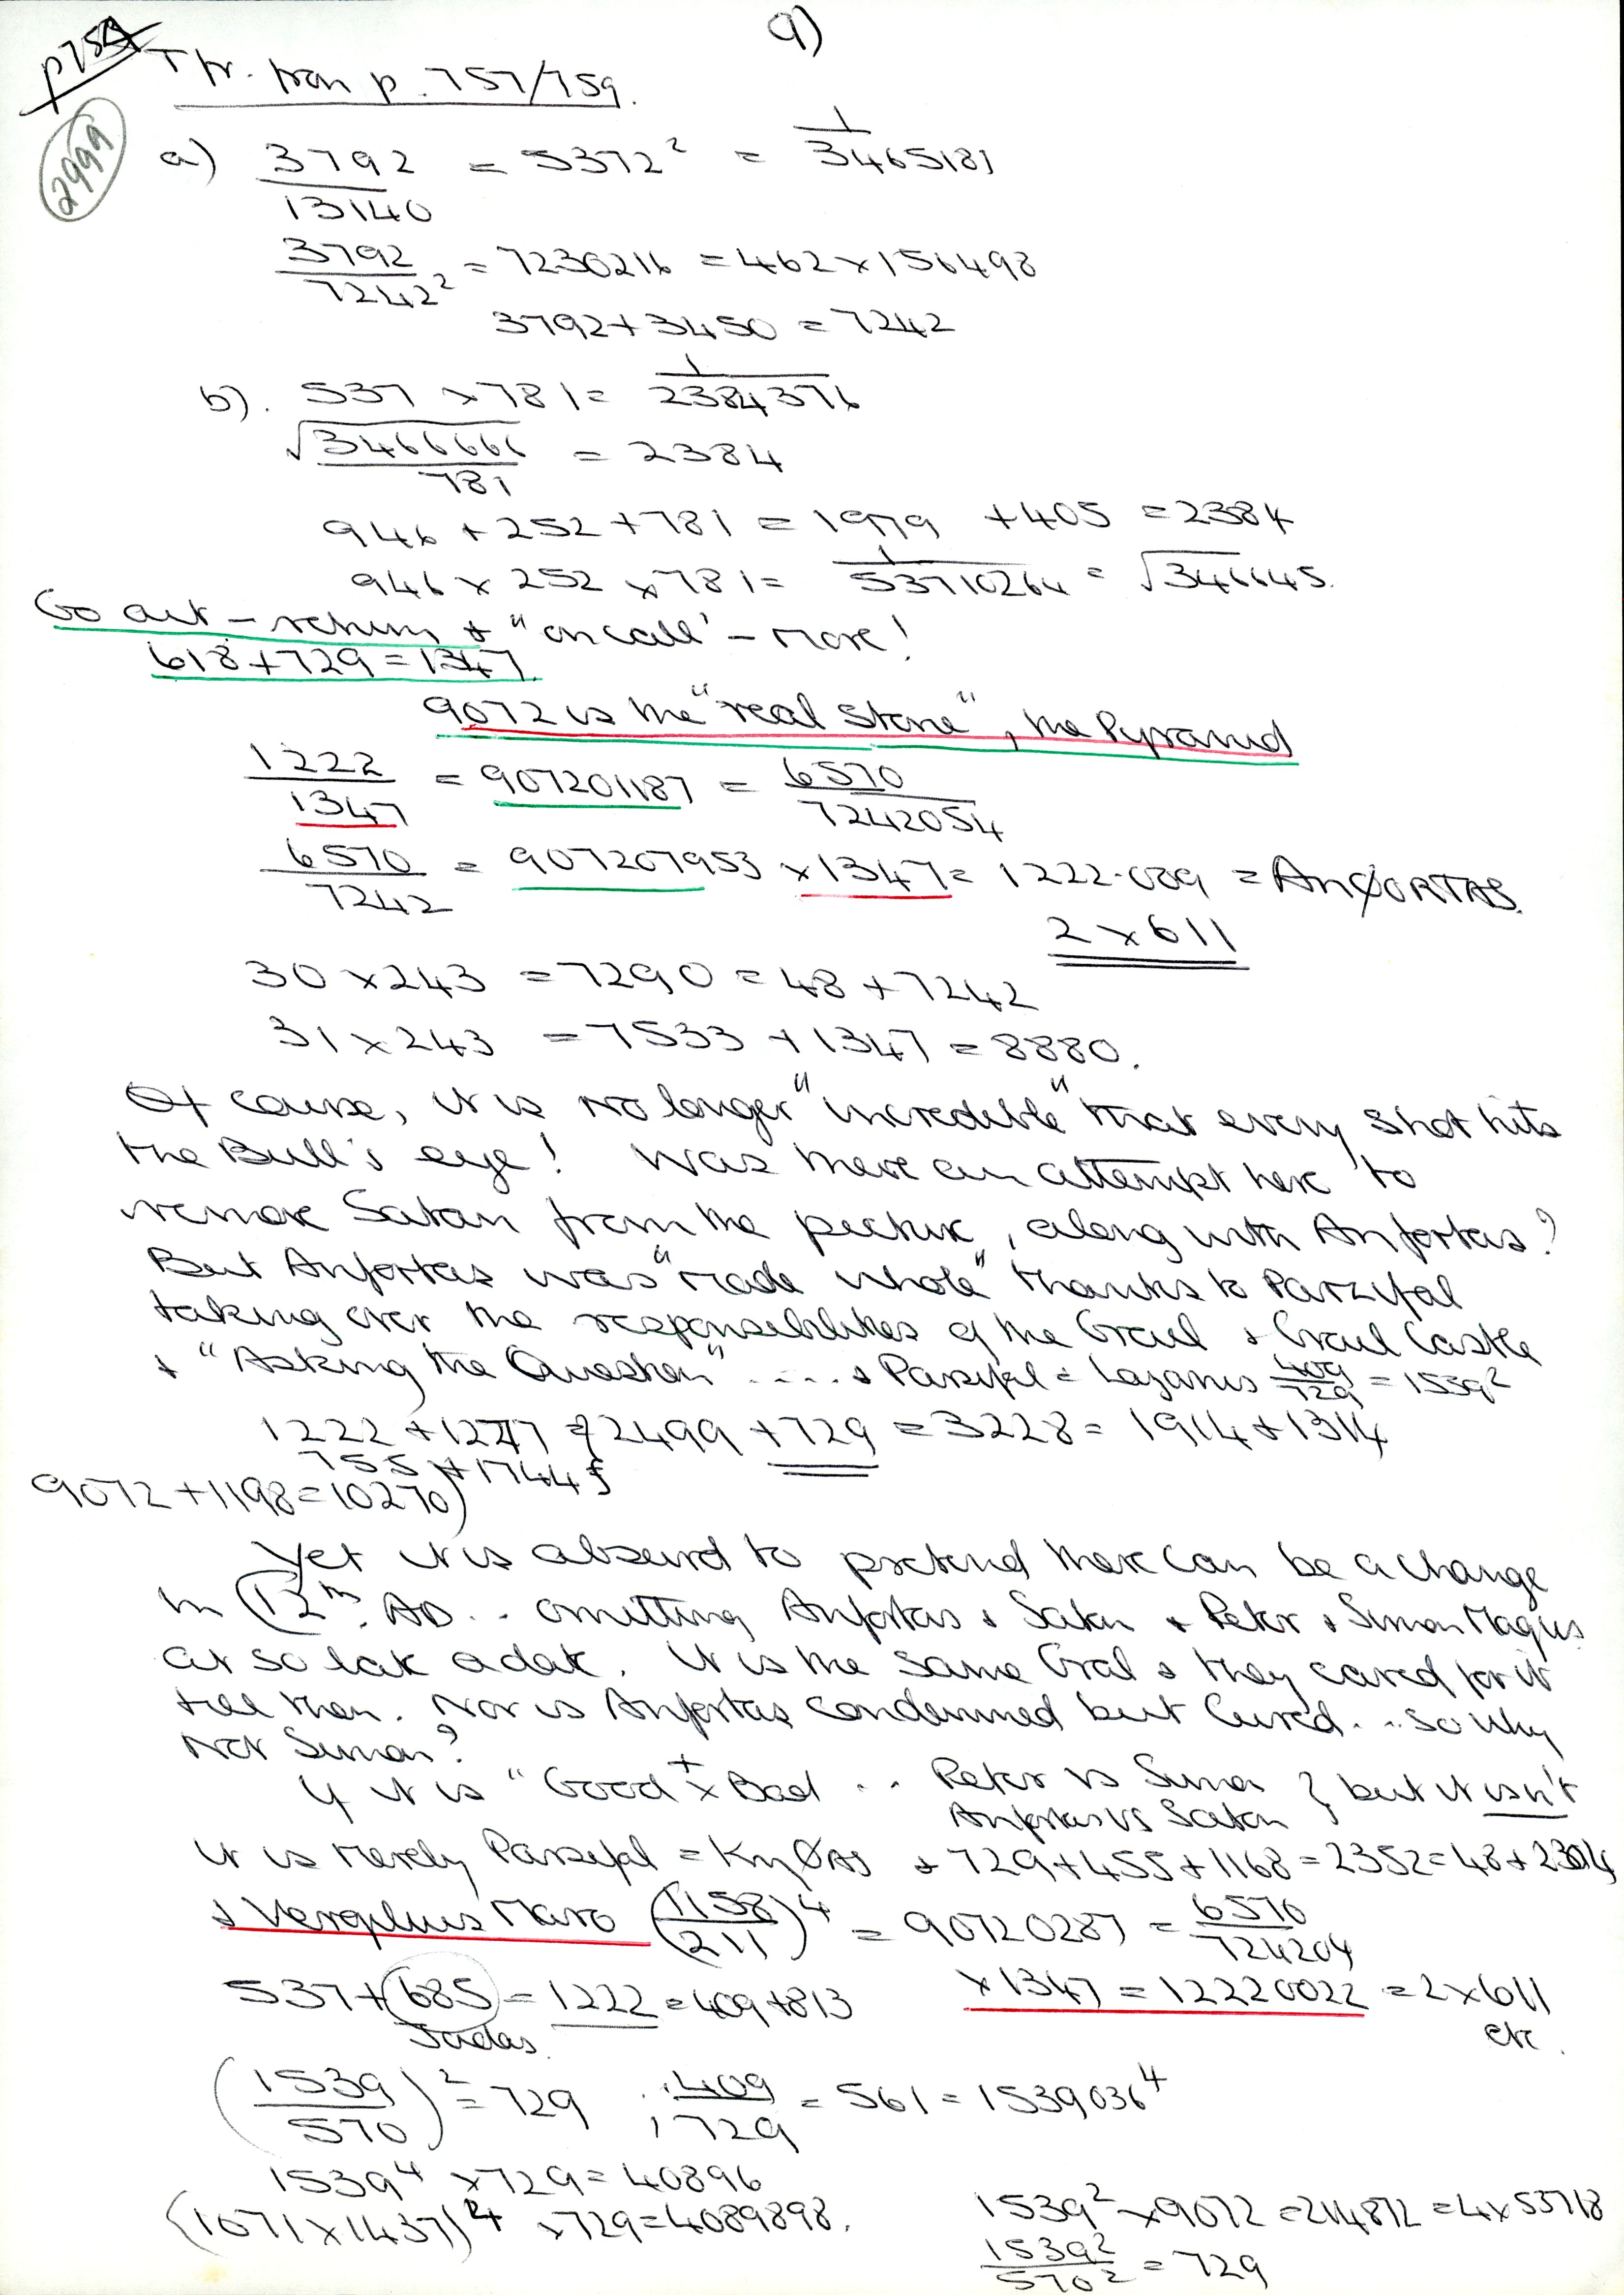 9)
p759
Tfr. from p. 757/759.
2999
a) 3792/13140 = 5372² = 1/3465181
3792/7242² = 7230216 = 462 × 156498
3792 + 3450 = 7242
b). 537 × 781 = 1/2384376
√3466666/781 = 2384
946 + 252 + 781 = 1979 + 405 = 2384
946 × 252 × 781 = 1/53710264 = √346645.
Go out – return & "on call" – more!
618 + 729 = 1347.
9072 is the "real stone", the Pyramid
1222/1347 = 907201187 = 6570/7242054
6570/7242 = 907207953 × 1347 = 1222.009 = AnØORTAS.
2 × 611
30 × 243 = 7290 = 48 + 7242
31 × 243 = 7533 + 1347 = 8880.
Of course, it is no longer "incredible" that every shot hits
the Bull's eye! Was there an attempt here to
remove Satan from the picture, along with Anfortas?
But Anfortas was "made whole" thanks to Parzifal
taking over the responsibilities of the Grail & Grail Castle
& "Asking the Question" .... & Parsifal = Lazarus 409/729 = 1539²
1222 + 1277 = 2499 + 729 = 3228 = 1914 + 1314
755 + 1744
9072 + 1198 = 10270)
Yet it is absurd to pretend there can be a change
in (12th. AD .. omitting Anfortas & Satan & Peter & Simon Magus
at so late a date. It is the same Gral & they cared for it
till then. Nor is Anfortas condemned but Cured... so why
not Simon?
If it is "Good + × Bad .. Peter vs Simon } but it isn't
Anfortas vs Satan
It is merely Parsifal = KnØAs & 729 + 455 + 1168 = 2352 = 48 + 2304
& Vergilius Maro (1158/211)⁴ = 90720287 = 6570/724204
537 + 685 = 1222 = 409 + 813 × 1347 = 12220022 = 2 × 611
Judas. etc.
(1539/570)² = 729 .409/.729 = 561 = 1539036⁴
1539⁴ × 729 = 40896
(1071 × 1437)⁴ × 729 = 4089898.
1539² × 9072 = 214872 = 4 × 53718
1539²/570² = 729